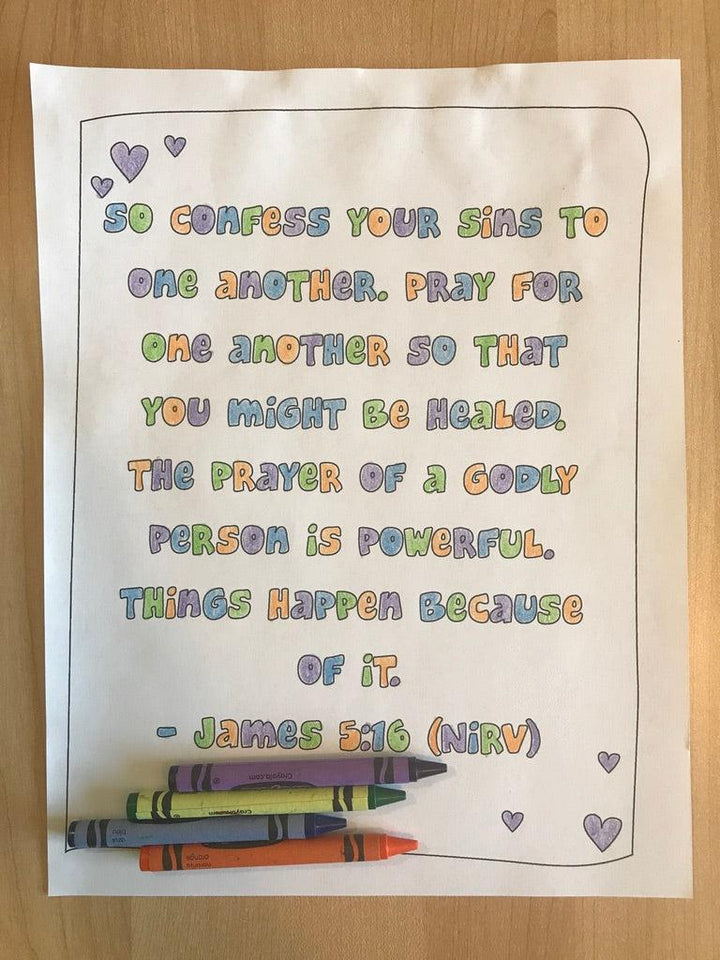 So confess your sins to
one another. Pray for
one another so that
you might be healed.
The prayer of a godly
person is powerful.
Things happen because
of it.
- James 5:16 (NiRV)
Crayola.com
bleu
orange